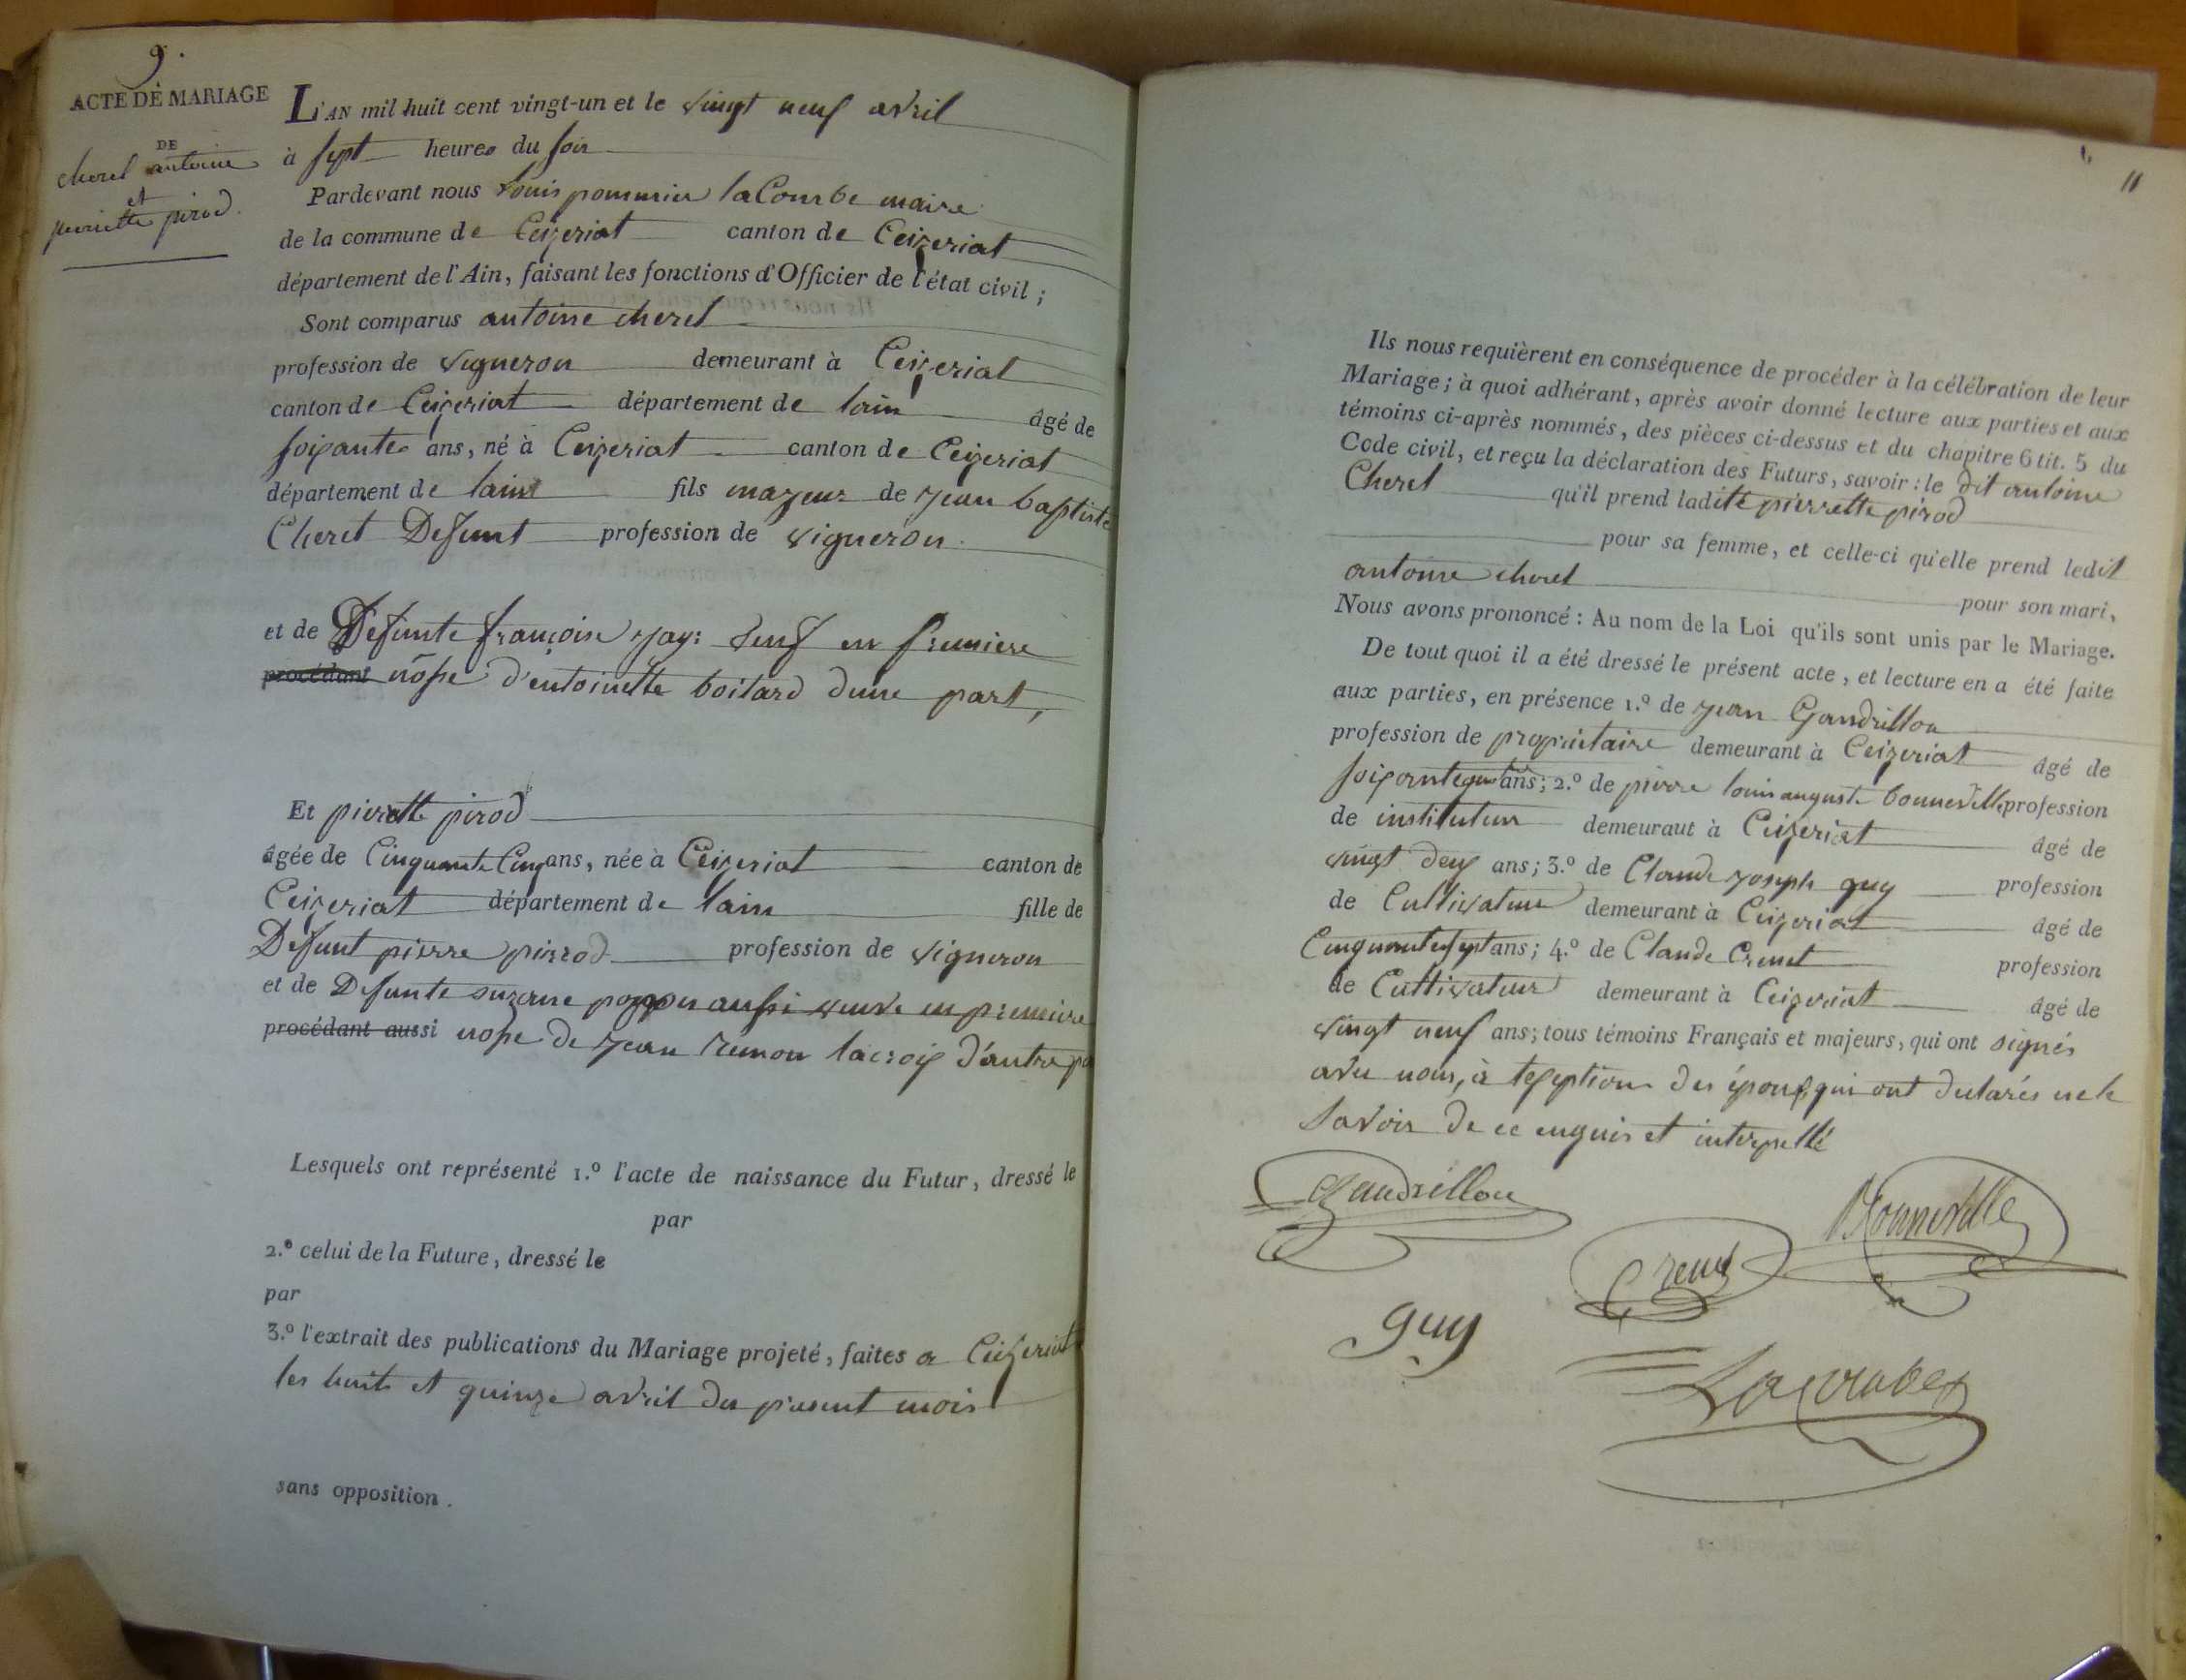 9.
ACTE DE MARIAGE
DE
cherel antoine
et
pierrette pirod.
L'AN mil huit cent vingt-un et le vingt neuf avril
à sept heures du soir
Pardevant nous Louis pommier laCourbe maire
de la commune de Ceizeriat canton de Ceizeriat
département de l'Ain, faisant les fonctions d'Officier de l'état civil ;
Sont comparus antoine cherel
profession de vigneron demeurant à Ceizeriat
canton de Ceizeriat département de lain âgé de
soixante ans, né à Ceizeriat canton de Ceizeriat
département de lain fils majeur de jean baptiste
Cherel Defunt profession de vigneron
et de Defunte françoise jay: veuf en premiere
procédant nôpse d'entoinette boitard dune part,
Et pierrette pirod
âgée de Cinquante Cinq ans, née à Ceizeriat canton de
Ceizeriat département de lain fille de
Defunt pierre pirrod profession de vigneron
et de Defunte suzane aussi veuve en premiere
procédant aussi nopse de jean lacroix d'autre pa
Lesquels ont représenté 1.º l'acte de naissance du Futur, dressé le
par
2.º celui de la Future, dressé le
par
3.º l'extrait des publications du Mariage projeté, faites a Ceizeriat
les huit et quinze avril du present mois
sans opposition.
11
Ils nous requièrent en conséquence de procéder à la célébration de leur
Mariage ; à quoi adhérant, après avoir donné lecture aux parties et aux
témoins ci-après nommés, des pièces ci-dessus et du chapitre 6 tit. 5 du
Code civil, et reçu la déclaration des Futurs, savoir : le dit antoine
Cherel qu'il prend ladite pierrette pirod
pour sa femme, et celle-ci qu'elle prend ledit
antoine cherel pour son mari,
Nous avons prononcé : Au nom de la Loi qu'ils sont unis par le Mariage.
De tout quoi il a été dressé le présent acte, et lecture en a été faite
aux parties, en présence 1.º de jean Gandrillon
profession de proprietaire demeurant à Ceizeriat âgé de
soixante ans ; 2.º de pierre louis auguste bonneville profession
de instituteur demeuraut à Ceizeriat âgé de
vingt deux ans ; 3.º de Claude joseph guy profession
de Cultivateur demeurant à Ceizeriat âgé de
Cinquante sept ans ; 4.º de Claude Crenet profession
de Cultivateur demeurant à Ceizeriat âgé de
vingt neuf ans ; tous témoins Français et majeurs, qui ont signés
avec nous, à lexeption des époux, qui ont declarés ne le
savoir de ce enquis et interpellé
Gandrillon
Bonneville
Crenet
guy
Lacourbe